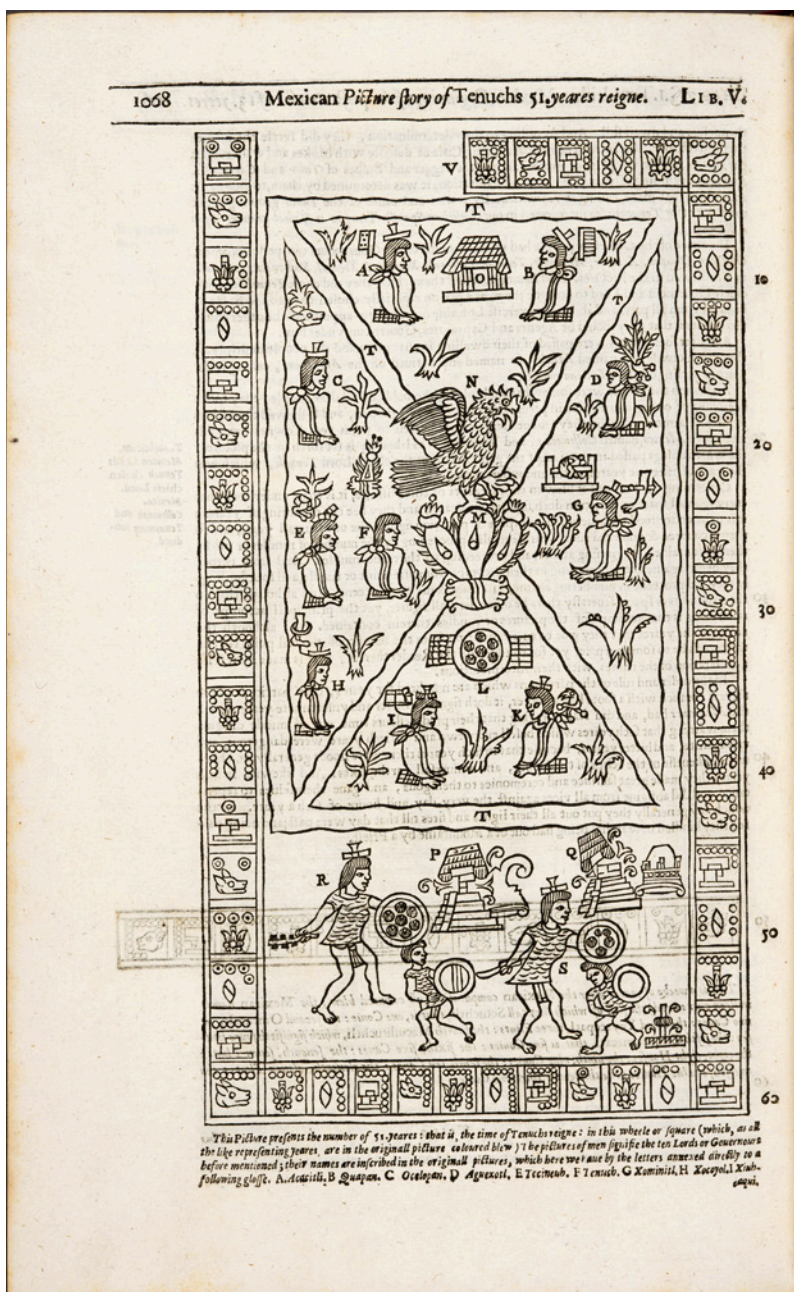 1068 Mexican Picture ſtory of Tenuchs 51.yeares reigne. LIB. V.
V
T
A
O
B
10
T
T
N
C
D
20
M
G
E
F
30
H
L
I
K
40
T
P
Q
R
50
S
60
This Picture preſents the number of 51.yeares: that is, the time of Tenuchs reigne: in this wheele or ſquare (which, as all
the like repreſenting yeares, are in the originall picture coloured blew) The pictures of men ſignifie the ten Lords or Gouernours
before mentioned; their names are inſcribed in the originall pictures, which here we haue by the letters annexed directly to a
following gloſſe. A.Acacitli. B Quapan. C Ocelopan. D Aguexotl. E Tecineuh. F Tenuch. G Xominitl, H Xocoyol. I Xiuh-
caqui.